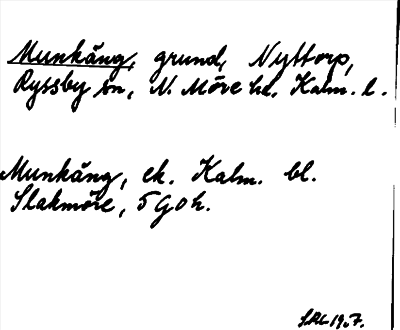 Munkäng, grund, Nyttorp,
Ryssby sn, N. Möre hd. Kalm. l.
Munkäng, ek. Kalm. bl.
Slakmöre, 5 G o h.